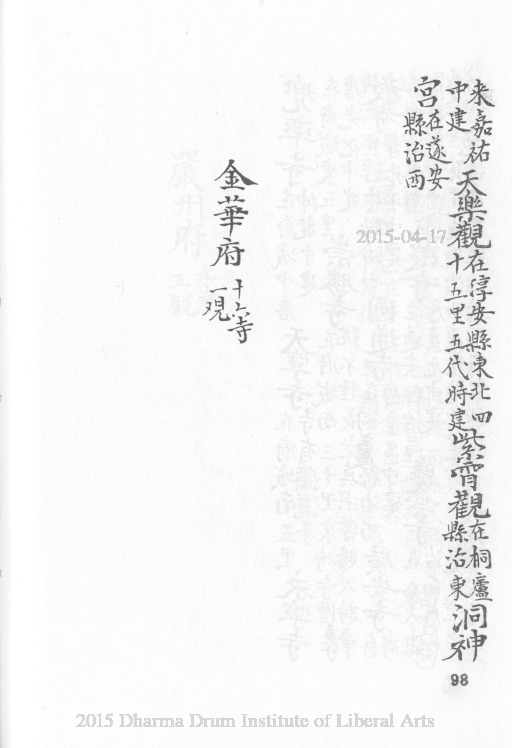 来嘉祐
中建
天樂觀
在淳安縣東北四
十五里五代時建
紫霄觀
在桐廬
縣治東
洞神
宮
在遂安
縣治西
金華府
十六寺
一观
98
2015-04-17
2015 Dharma Drum Institute of Liberal Arts